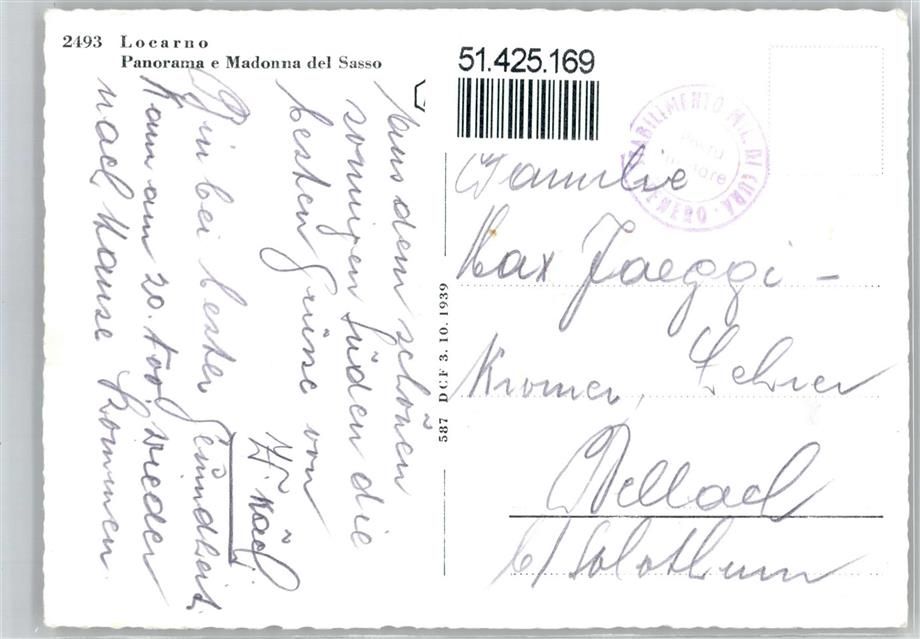 2493 Locarno
Panorama e Madonna del Sasso
51.425.169
STABILIMENTO MIL. DI CURA · TENERO
Posta
militare
587 DCF 3.10.1939
Aus dem schönen
sonnigen Süden die
besten Grüsse von
Bin bei bester Gesundheit.
Kann am 20. wieder
nach Hause kommen
Familie
Max Jaeggi -
Kromer, Lehrer
Bellach
b/ Solothurn